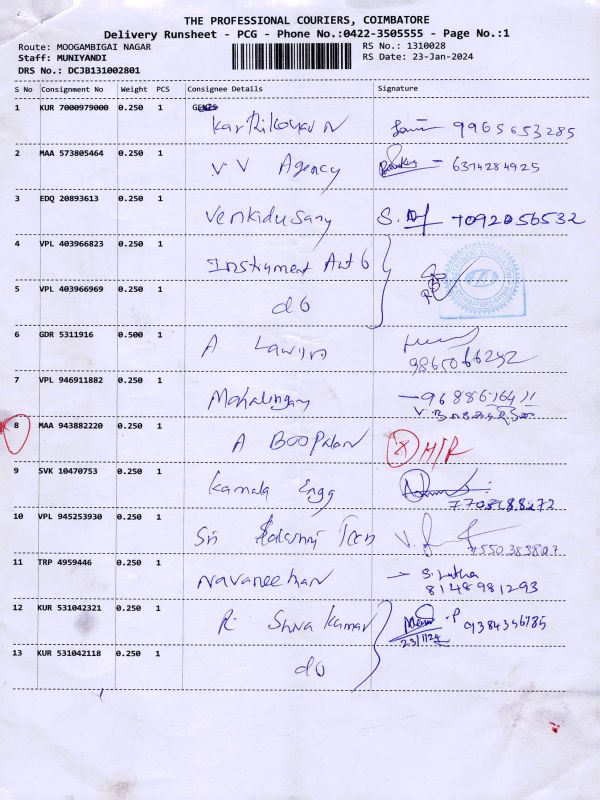 THE PROFESSIONAL COURIERS, COIMBATORE
Delivery Runsheet - PCG - Phone No.:0422-3505555 - Page No.:1
Route: MOOGAMBIGAI NAGAR RS No.: 1310028
Staff: MUNIYANDI RS Date: 23-Jan-2024
DRS No.: DCJB131002801
S No Consignment No Weight PCS Consignee Details Signature
1 KUR 7000979000 0.250 1 Karthikeyan N 9965653285
2 MAA 573805464 0.250 1 V V Agency 6374284925
3 EDQ 20893613 0.250 1 Venkidusamy S. 7092056532
4 VPL 403966823 0.250 1 Instrument Aut 6
5 VPL 403966969 0.250 1 do
6 GDR 5311916 0.500 1 A 9865066252
7 VPL 946911882 0.250 1 Mahalingam
8 MAA 943882220 0.250 1 A BOOPALAN
9 SVK 10470753 0.250 1 Kamala Engg 7708188272
10 VPL 945253930 0.250 1 Sri V. 7550383807
11 TRP 4959446 0.250 1 Navaneethan S. Latha
8148981293
12 KUR 531042321 0.250 1 R Shiva Kumar P 9384346785
23/1/24
13 KUR 531042118 0.250 1 do